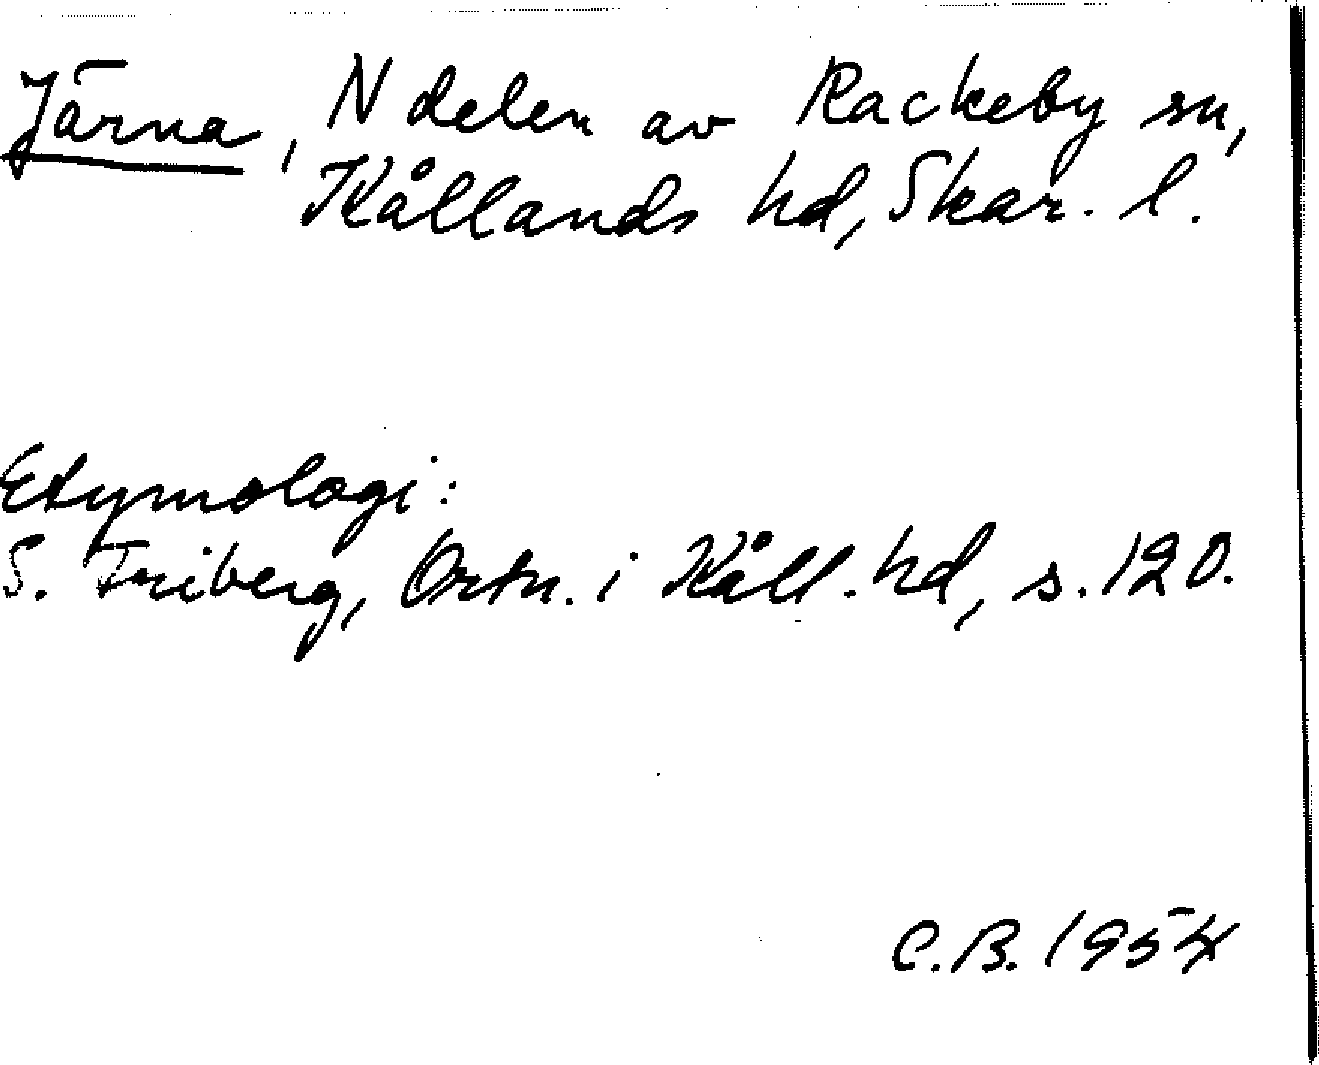 Järna, N delen av Rackeby sn,
Kållands hd, Skar. l.
Etymologi:
S. Friberg, Ortn. i Kåll. hd, s. 120.
C.B. 1954